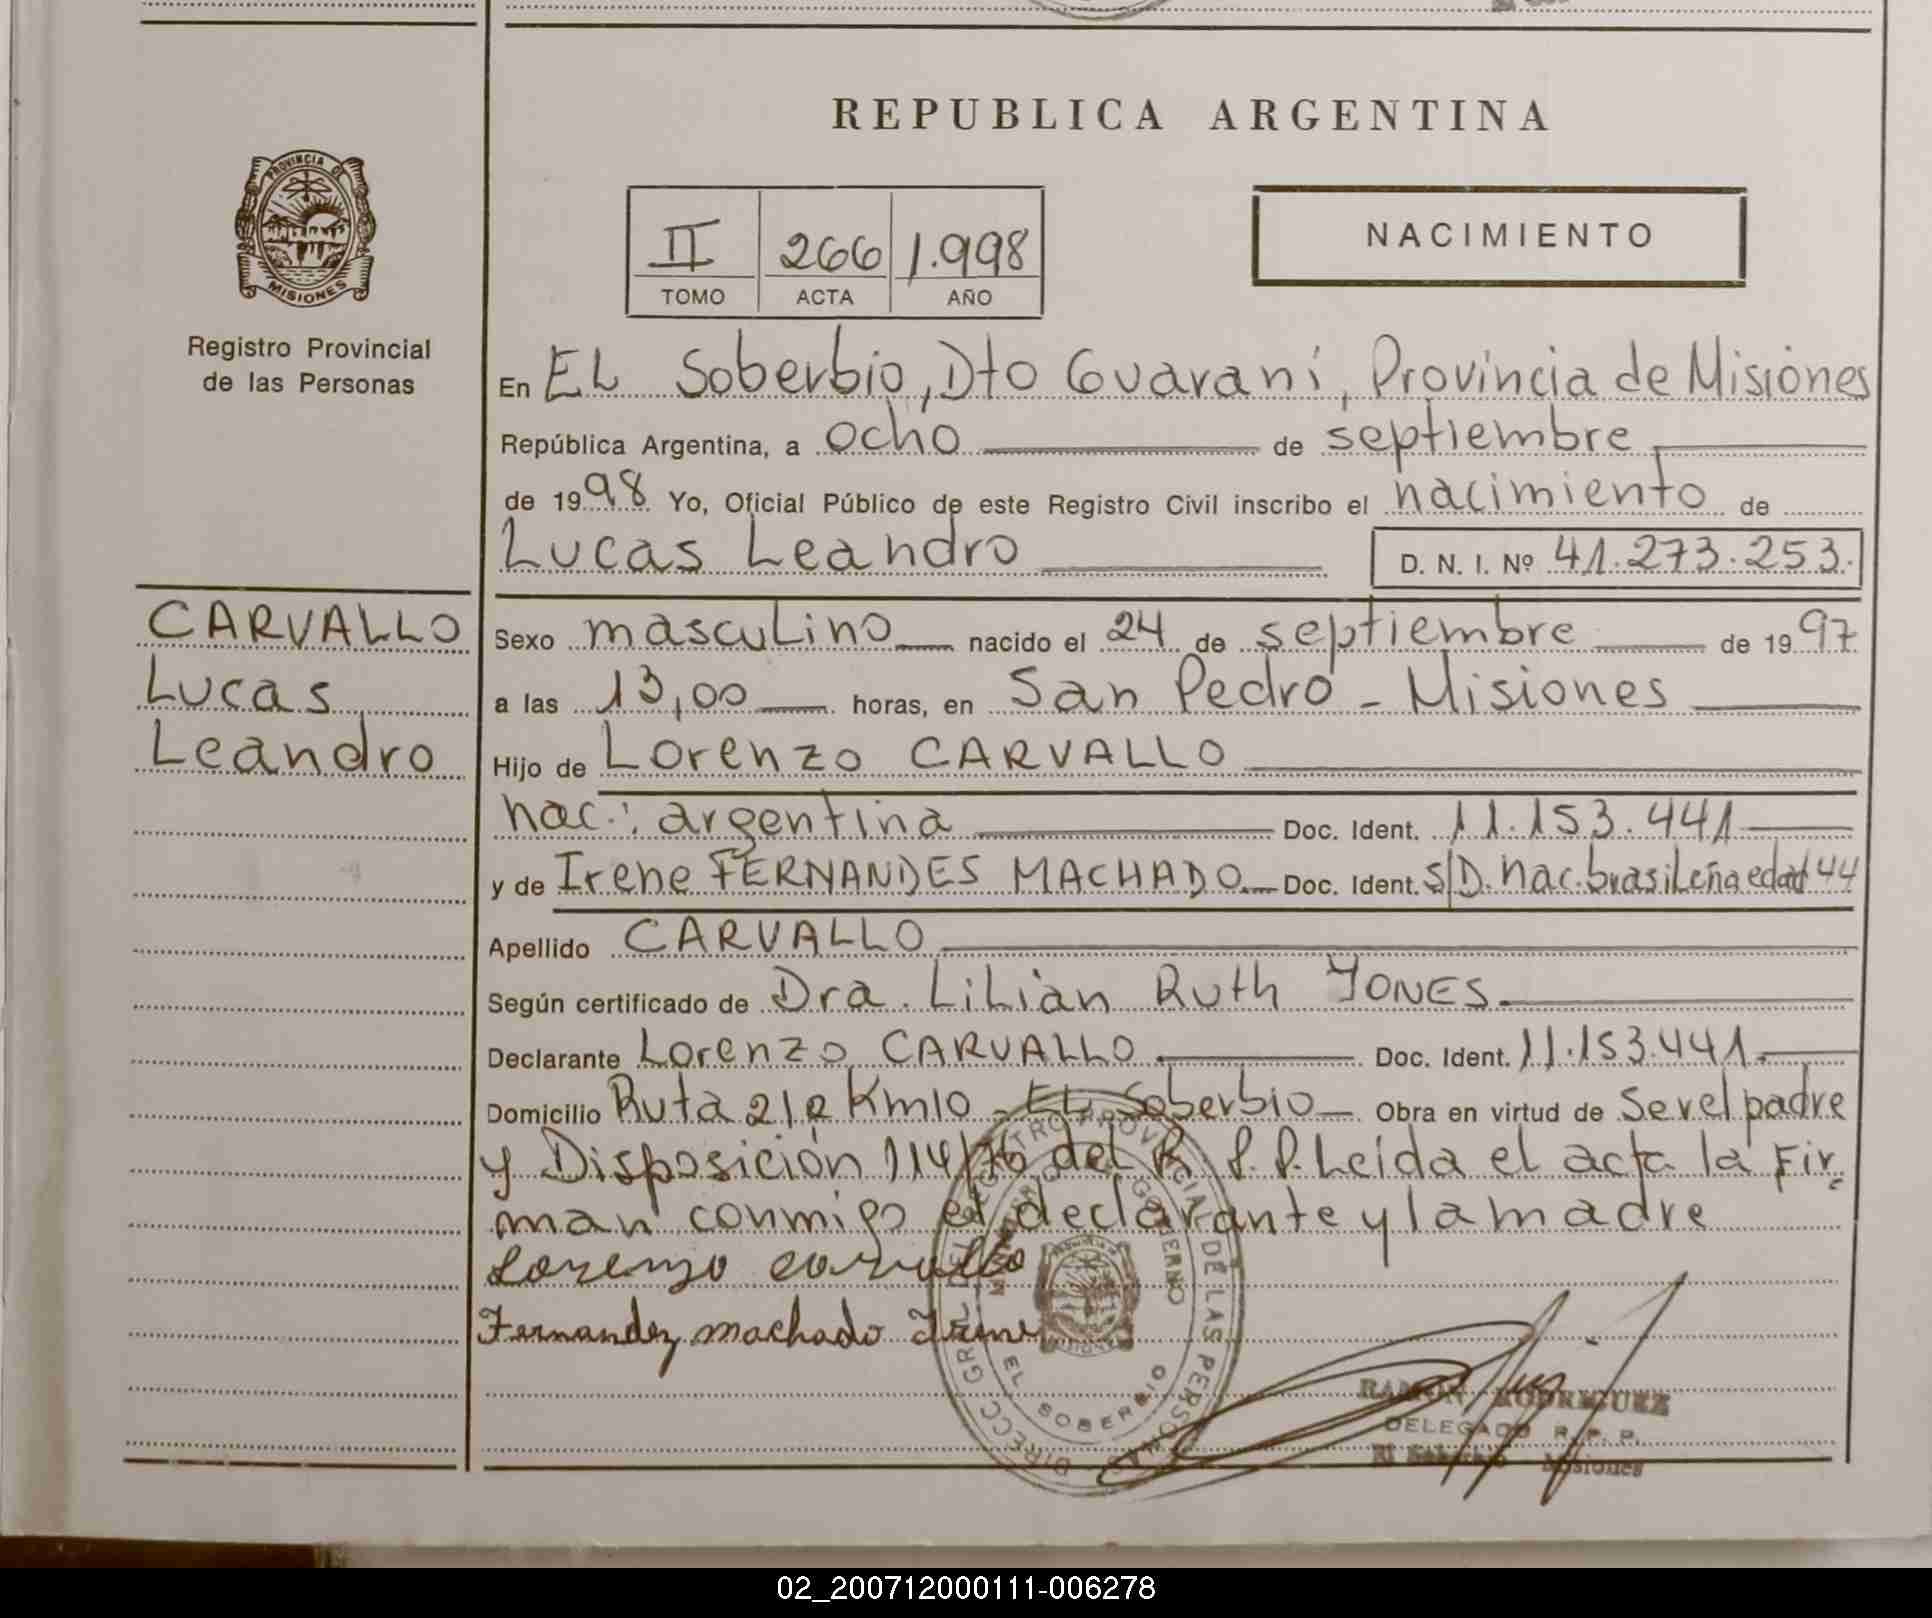 REPUBLICA ARGENTINA
PROVINCIA DE
MISIONES
Registro Provincial
de las Personas
II 266 1.998
TOMO ACTA AÑO
NACIMIENTO
En EL Soberbio, Dto Guaraní, Provincia de Misiones
República Argentina, a ocho de septiembre
de 1998 Yo, Oficial Público de este Registro Civil inscribo el nacimiento de
Lucas Leandro D. N. I. Nº 41.273.253.
CARVALLO
Lucas
Leandro
Sexo masculino nacido el 24 de septiembre de 1997
a las 13,00 horas, en San Pedro - Misiones
Hijo de Lorenzo CARVALLO
nac.: argentina Doc. Ident. 11.153.441
y de Irene FERNANDES MACHADO Doc. Ident. S/D. nac. brasileña edad 44
Apellido CARVALLO
Según certificado de Dra. Lilian Ruth JONES
Declarante Lorenzo CARVALLO Doc. Ident. 11.153.441
Domicilio Ruta 212 Km10 - EL Soberbio Obra en virtud de Ser el padre
y Disposición 114/76 del R. P. P. Leída el acta la Fir
man conmigo el declarante y la madre
Lorenzo carvallo
Fernandez machado Irene
DIRECC GRL DEL REGISTRO PROVINCIAL DE LAS PERSONAS
GOBIERNO
EL SOBERBIO
RAMON RODRIGUEZ
DELEGADO R. P. P.
El Soberbio Misiones
02_200712000111-006278